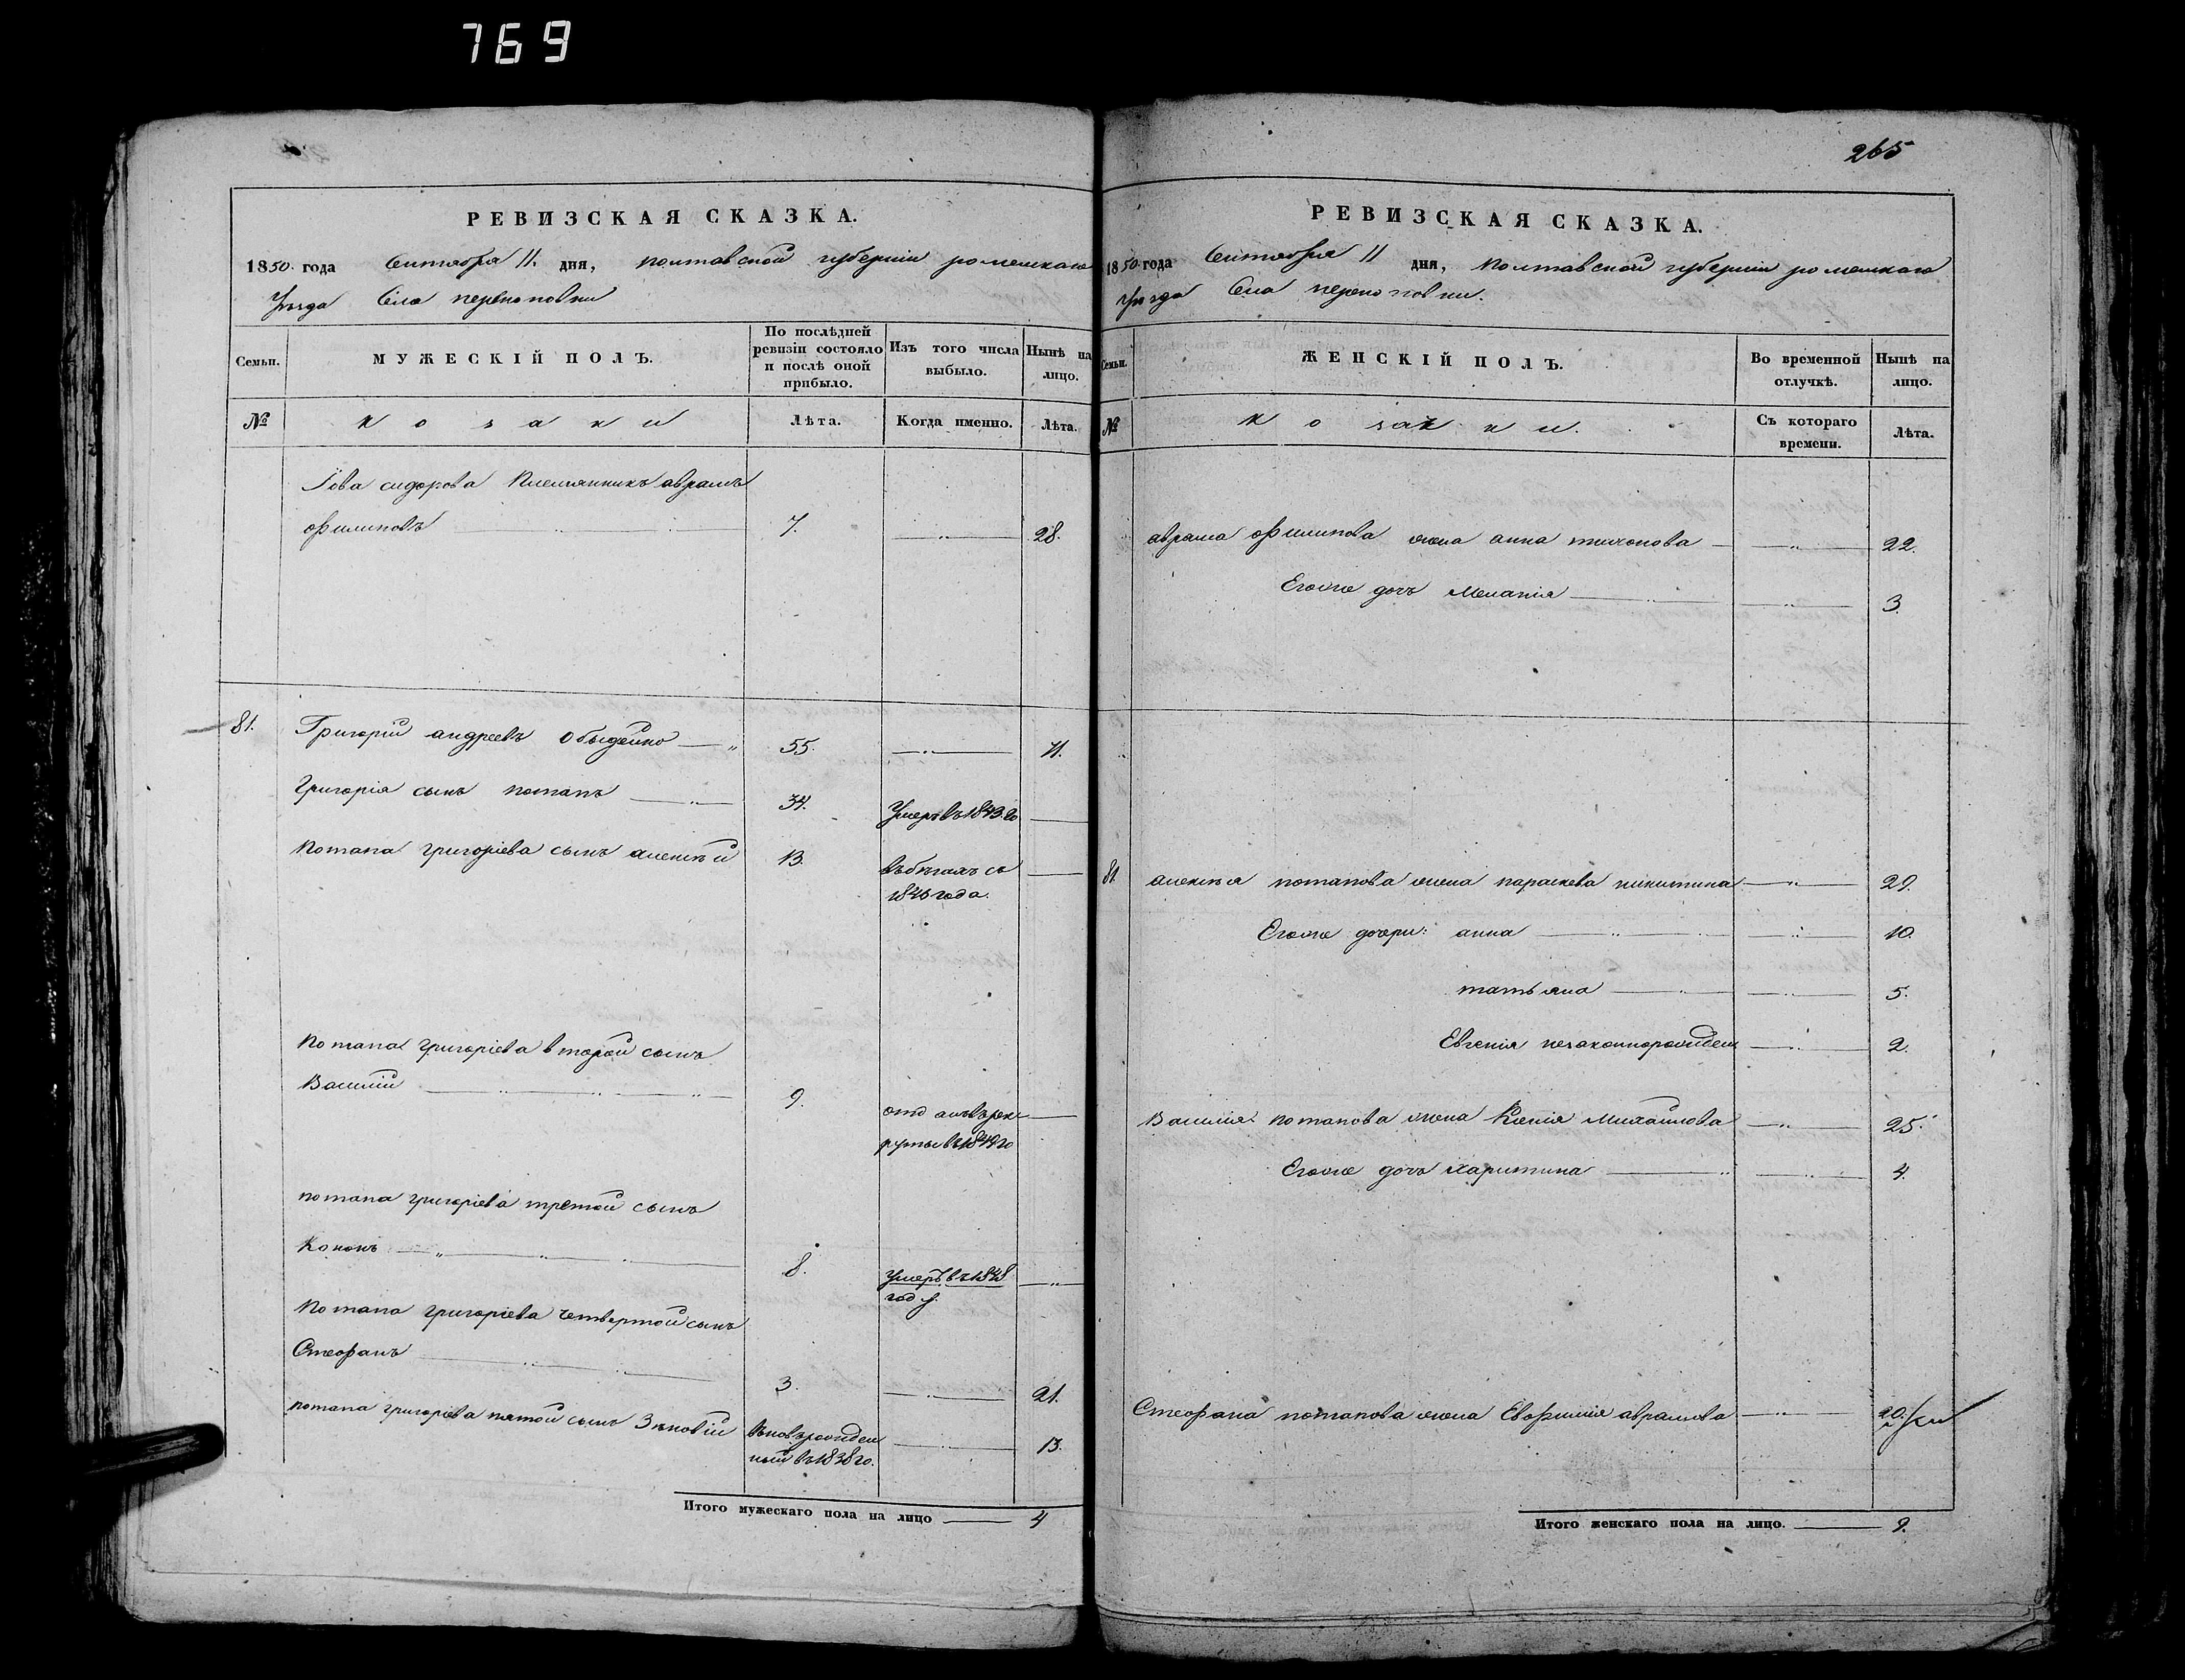 769
РЕВИЗСКАЯ СКАЗКА.
1850 года Сентября 11. дня, полтавской губернии роменскаго
уезда Села перекоповки
Семьи.
МУЖЕСКІЙ ПОЛЪ.
По послѣдней ревизіи состояло и послѣ оной прибыло.
Изъ того числа выбыло.
Нынѣ на лицо.
№
козаки
Лѣта.
Когда именно.
Лѣта.
Іова сидорова племянникъ аврамъ
филиповъ 7. 28.
81. Григорій андреевъ 55. 71.
Григорія сынъ потапъ 34. Умеръ въ 1843 го
потапа григоріева сынъ алексѣй 13. въ бегахъ съ
1846 года.
потапа григоріева второй сынъ
Василій 9. отданъ въ рек
руты въ 1849 го
потапа григоріева третой сынъ
Кононъ 8. Умеръ в 1848
году.
потапа григоріева четвертой сынъ
Стефанъ 3. 21.
потапа григоріева пятой сынъ Зѣновій Вновърожден
ный въ 1838 го. 13.
Итого мужескаго пола на лицо 4
265
РЕВИЗСКАЯ СКАЗКА.
1850 года Сентября 11 дня, полтавской губерніи роменскаго
уезда Села перекоповки.
Семьи.
ЖЕНСКІЙ ПОЛЪ.
Во временной отлучкѣ.
Нынѣ на лицо.
№
козачки.
Съ котораго времени.
Лѣта.
аврама филипова жена анна тихонова 22.
Егоже дочь Меланія 3.
81 алексѣя потапова жена параскева никитина 29.
Егоже дочери: анна 10.
татьяна 5.
Евгенія незаконнорожден 2.
Василія потапова жена Ксенія Михайлова 25.
Егоже дочь харитина 4.
Стефана потапова жена Евфимія аврамова 20.
Итого женскаго пола на лицо. 9.